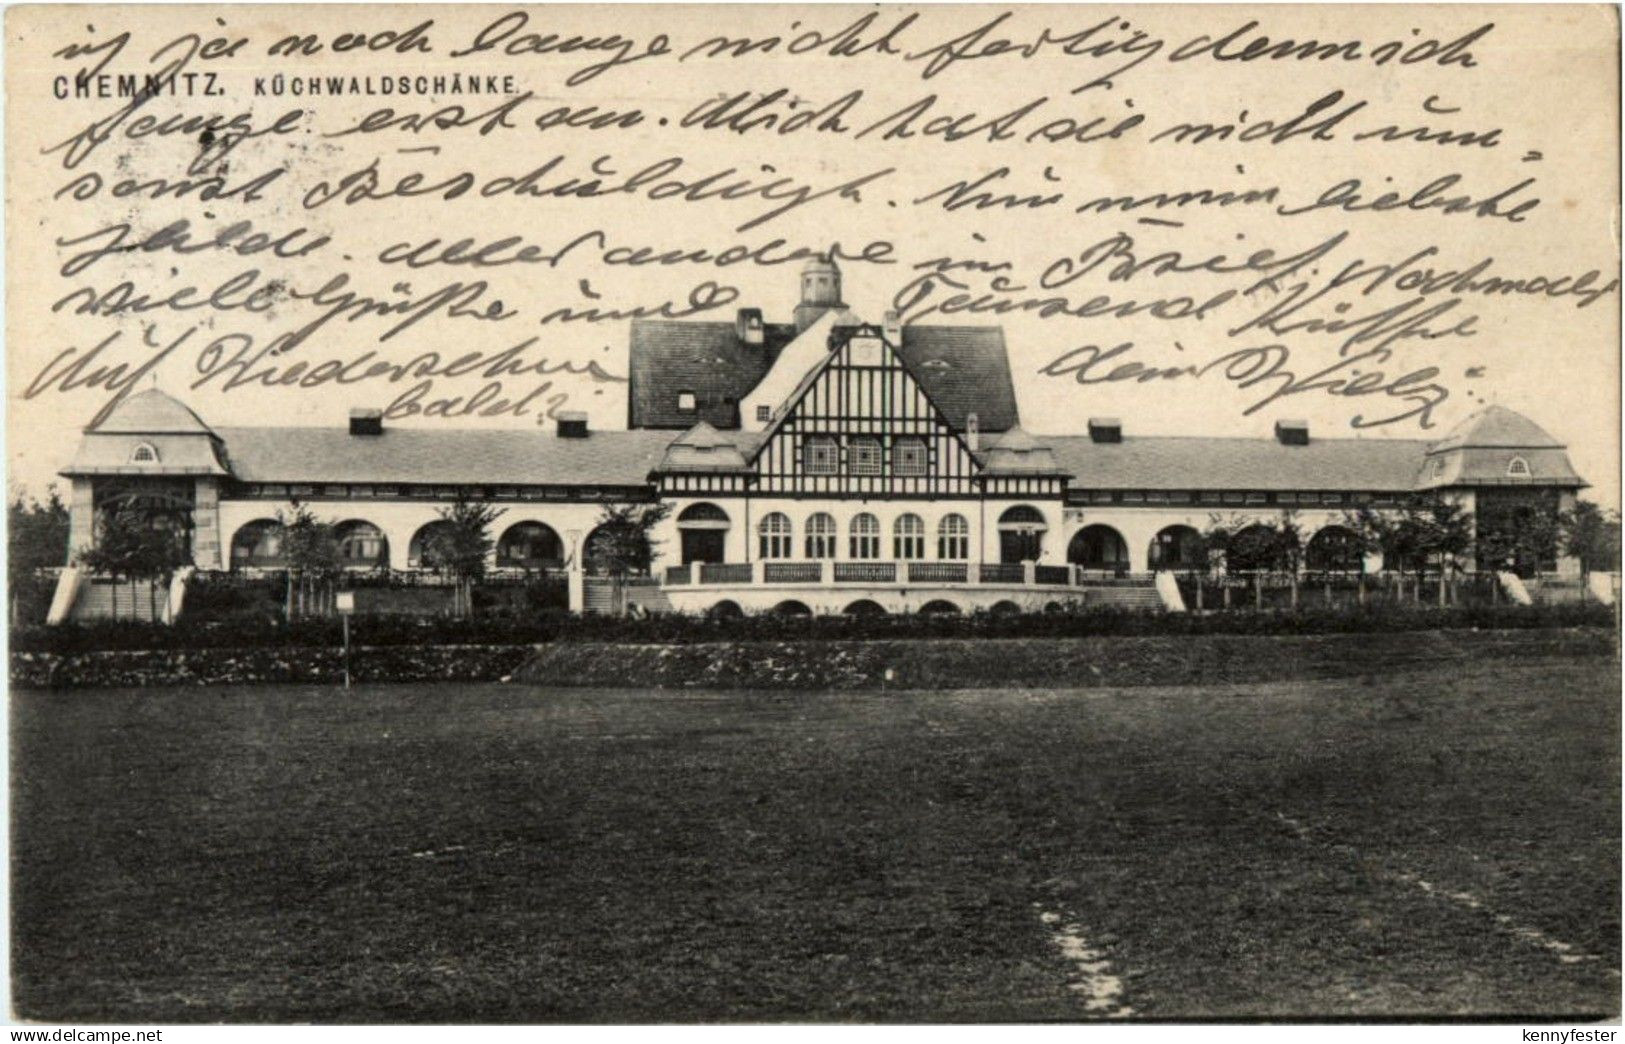 ist ja noch lange nicht fertig denn ich
CHEMNITZ. KÜCHWALDSCHÄNKE.
fange erst an. Mich hat sie nicht um-
sonst Beschuldigt. Nun meine liebste
Hilde. alles andere im Brief. Nochmals
viele Grüße und Tausend Küsse
Auf Wiedersehn dein Willy.
bald?
www.delcampe.net
kennyfester